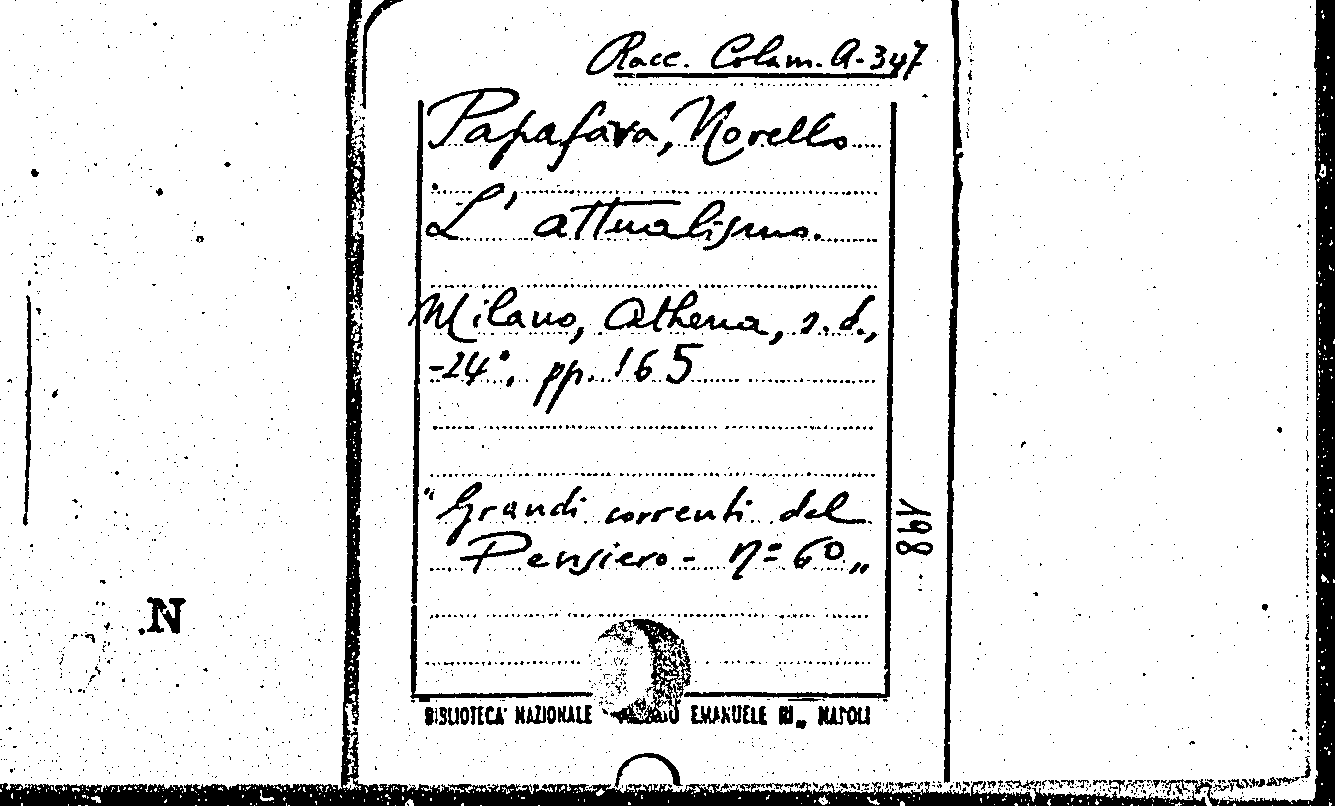 Racc. Colam. A-347
Papafava, Novello
L' attualismo.
Milano, Athena, s.d.,
-24°. pp. 165
"Grandi correnti del
Pensiero - n= 60„
BIBLIOTECA NAZIONALE EMANUELE III„ NAPOLI
.N